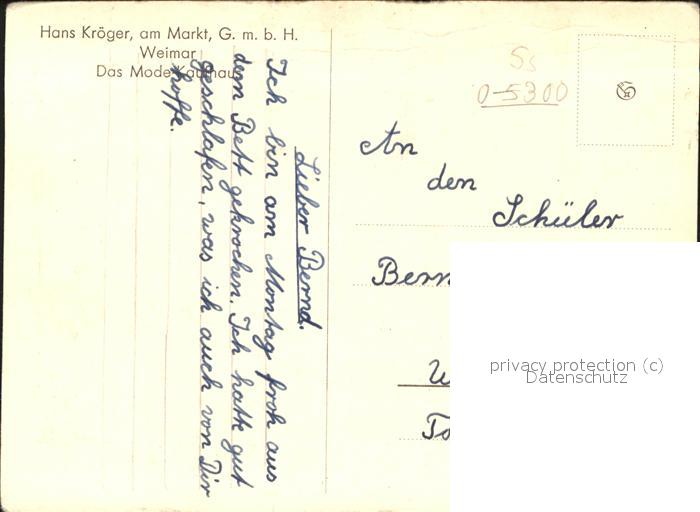 Hans Kröger, am Markt, G. m. b. H.
Weimar
Das Mode-Kaufhaus
Lieber Bernd.
Ich bin am Montag froh aus
dem Bett gekrochen. Ich hatte gut
geschlafen, was ich auch von Dir
hoffe.
Ss
0-5300
An
den
Schüler
Bern
W
To
privacy protection (c)
Datenschutz